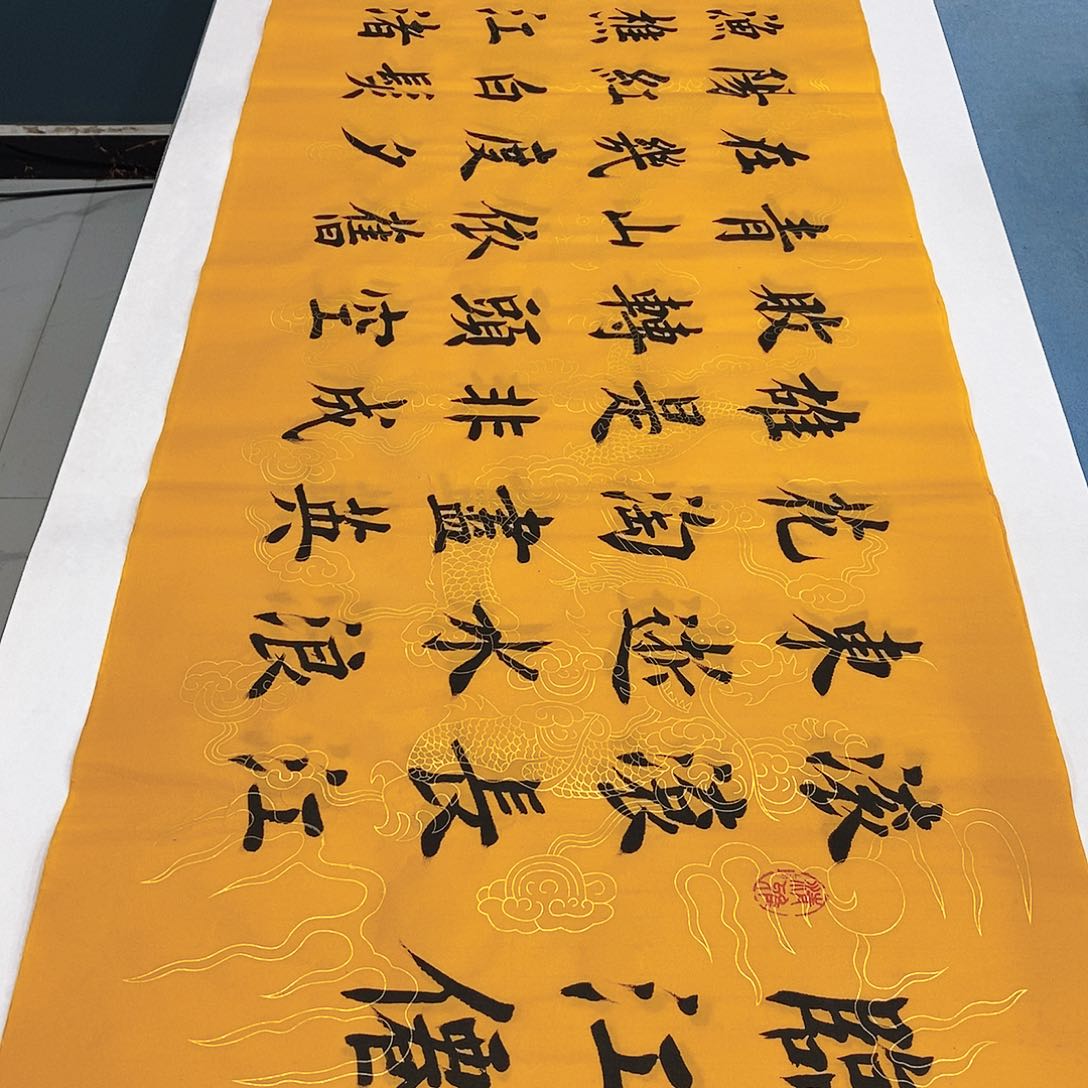 臨江僊
滚滾長江
東逝水浪
花淘盡英
雄是非成
敗轉頭空
青山依舊
在幾度夕
陽紅白髮
漁樵江渚